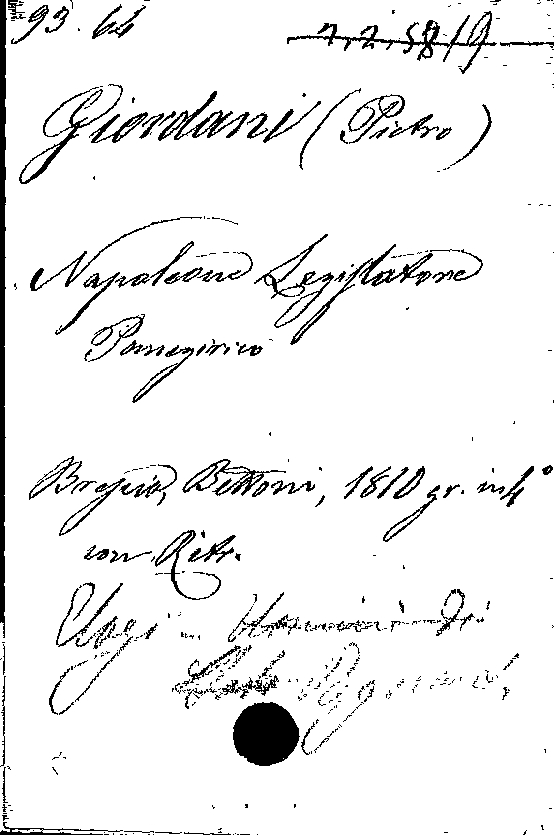 93. 64
Giordani (Pietro)
Napoleone Legislatore
Panegirico
Brescia, Bettoni, 1810 gr. in 4°
con Ritr.
Elogi